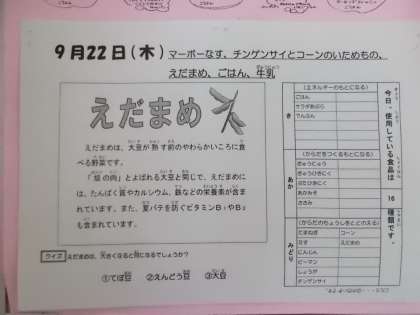 9月22日(木) マーボーなす、チンゲンサイとコーンのいためもの、
えだまめ、ごはん、牛乳
えだまめ
えだまめは、大豆が熟す前のやわらかいころに食
べる野菜です。
「畑の肉」とよばれる大豆と同じで、えだまめに
は、たんぱく質やカルシウム、鉄などの栄養素が含ま
れています。また、夏バテを防ぐビタミンB1やB2
も含まれています。
クイズ えだまめは、大きくなると何になるでしょうか?
①てぼ豆 ②えんどう豆 ③大豆
今日、使用している食品は 16 種類です。
き
(エネルギーのもとになる)
ごはん
サラダあぶら
でんぷん
あか
(からだをつくるもとになる)
ぎゅうにゅう
ぎゅうひきにく
ぶたひきにく
あかみそ
ささみ
みどり
(からだのちょうしをととのえる)
たまねぎ コーン
なす えだまめ
にんじん
ピーマン
しょうが
チンゲンサイ